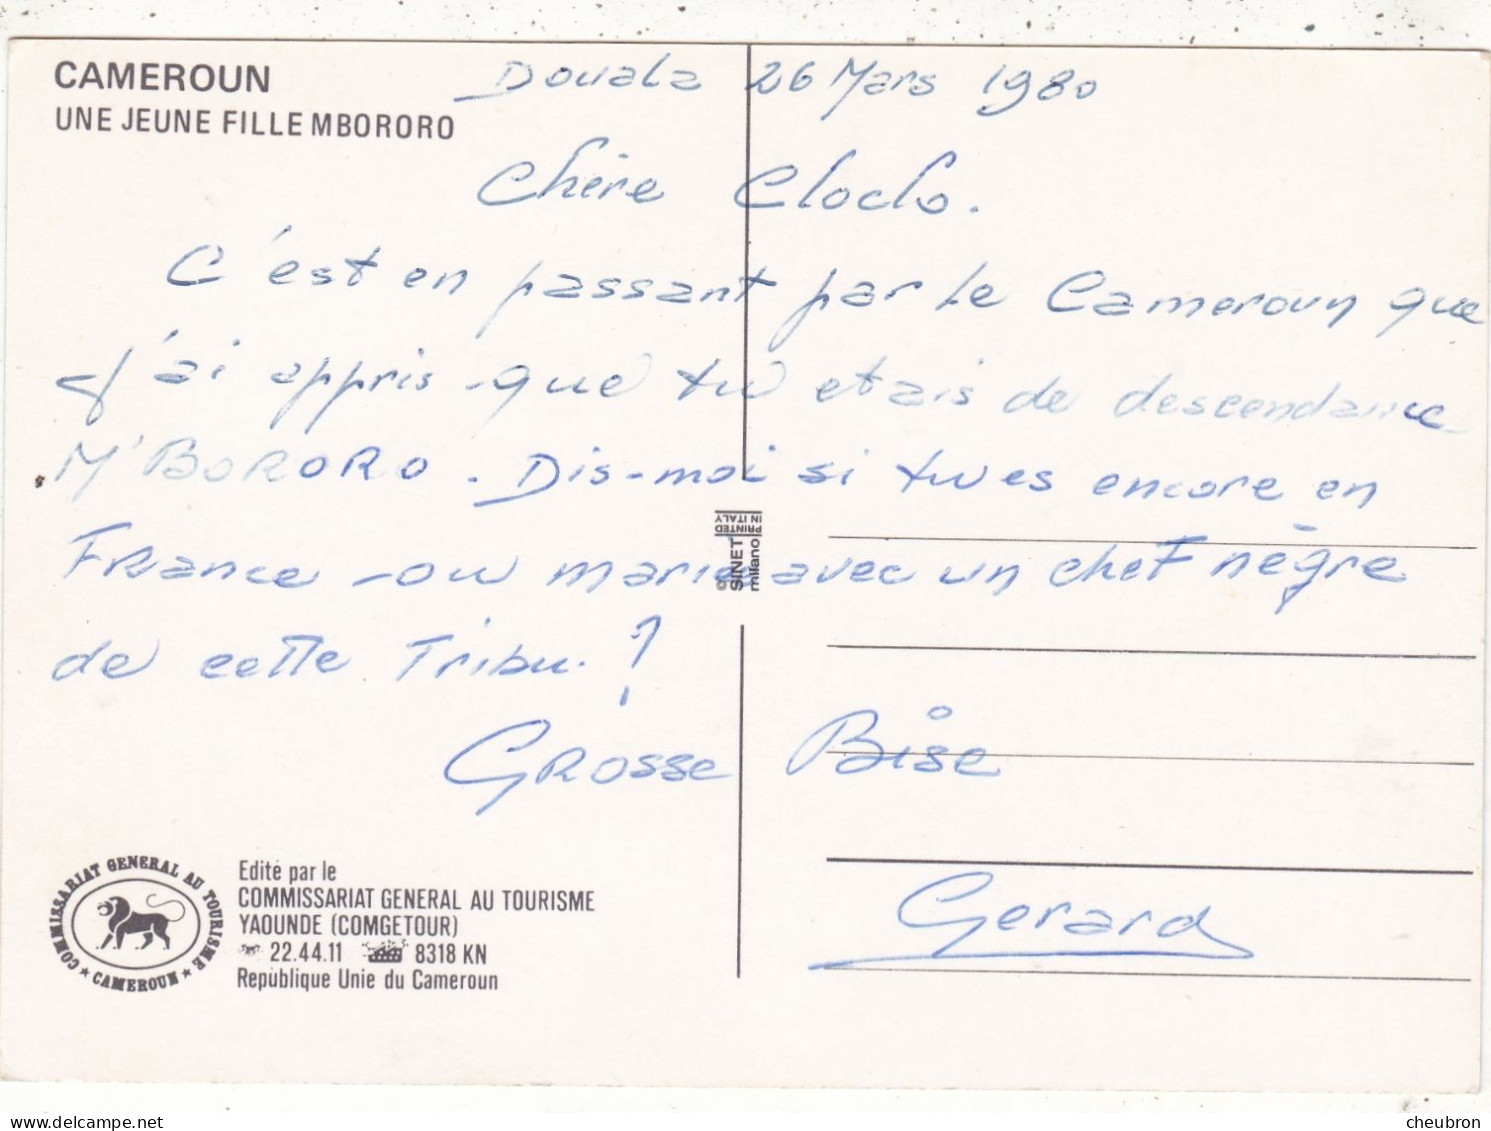 CAMEROUN
UNE JEUNE FILLE MBORORO
Douala 26 Mars 1980
Chère Cloclo.
C'est en passant par le Cameroun que
j'ai appris que tu etais de descendance
M'BORORO. Dis-moi si tu es encore en
France - ou marie avec un chef nègre
de cette Tribu. ?
Grosse Bise
Gerard
PRINTED
IN ITALY
© SINET
milano
COMMISSARIAT GENERAL AU TOURISME
★ CAMEROUN ★
Edité par le
COMMISSARIAT GENERAL AU TOURISME
YAOUNDE (COMGETOUR)
22.44.11 8318 KN
Republique Unie du Cameroun
delcampe.net
cheubron